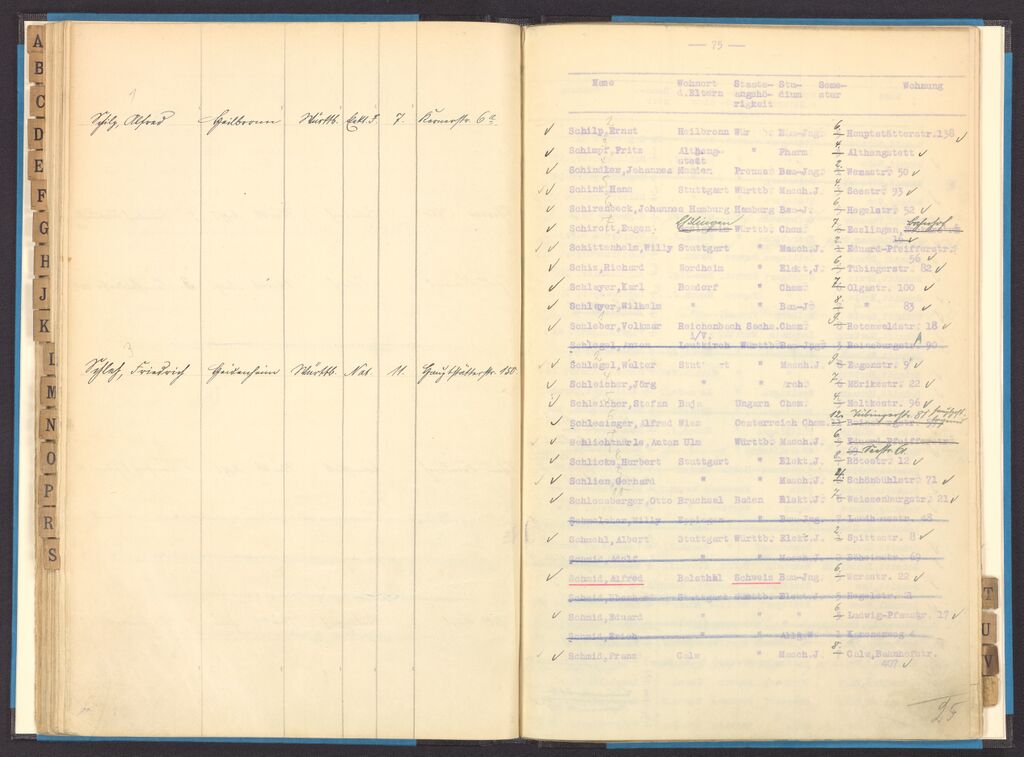 A
B
C
D
E
F
G
H
J
K
L
M
N
O
P
R
S
1
Schilz, Alfred Heilbronn Württb. Elkt. J. 7. Kernerstr. 6a
3
Schleh, Friedrich Heidenheim Württb. Nat. 11. Hauptstätterstr. 150
— 75 —
Name Wohnort d.Eltern Staatsangehörigkeit Studium Semester Wohnung
Schilp,Ernst Heilbronn Wür Bau-Jng. 6. Hauptstätterstr.138
Schimpf,Fritz Althengstett " Pharm 4. Althengstett
Schindler,Johannes Preuss Bau-Jng. 50
Schink,Hans Stuttgart Württb. Masch.J. 4. Seestr. 93
Schirenbeck,Johannes Hamburg Hamburg Bau-J. 6. Hegelstr. 52
Schirott,Eugen Eßlingen Württb. Chem. 7. Esslingen, Bahnhof
Schittenhelm,Willy Stuttgart " Masch.J. 2. Eduard-Pfeifferstr. 56
Schiz,Richard Nordheim " Elekt,J. 6. Tübingerstr. 82
Schlayer,Karl Bondorf " Chem. 7. Olgastr. 100
Schlayer,Wilhelm " " Bau-J. 8. " 83
Schleber,Volkmar Reichenbach i/V. Sachs.Chem. 9. Rotenwaldstr. 18
Schlegel,Anton Leutkirch Württb.Bau-Jng. 3 Reinsburgstr. 90
Schlegel,Walter Stuttgart " Masch.J. 9. Eugenstr. 9
Schleicher,Jörg " " Arch. 7. Mörikestr. 22
Schleicher,Stefan Baja Ungarn Chem. 4. Moltkestr. 96
Schlesinger,Alfred Wien Oesterreich Chem. 12. Tübingerstr. 81
Schlichthärle,Anton Ulm Württb. Masch.J. 6. Eduard-Pfeifferstr. Seestr. 61
Schlicke,Herbert Stuttgart " Elekt.J. 8. Rötestr. 12
Schlien,Gerhard " " Masch.J. Schönbühlstr. 71
Schlossberger,Otto Bruchsal Baden Elekt.J. 7. Weissenburgstr. 21
Schmelcher,Willy Eppingen " Bau-Jng. 48
Schmehl,Albert Stuttgart Württb. Elekt.J. 2. Spittastr. 8
Schmid,Adolf " " Masch.J. Böheimstr. 69
Schmid,Alfred Balsthal Schweiz Bau-Jng. 6. Werastr. 22
Schmid,Eberhard Stuttgart Württb. Elekt.J. 5 Hegelstr. 21
Schmid,Eduard " " " 6. Ludwig-Pfaustr. 17
Schmid,Erich " " Allg.W. 1 Kanonenweg
Schmid,Franz Calw " Masch.J. 8. Calw,Bahnhofstr. 407
25
T
U
V